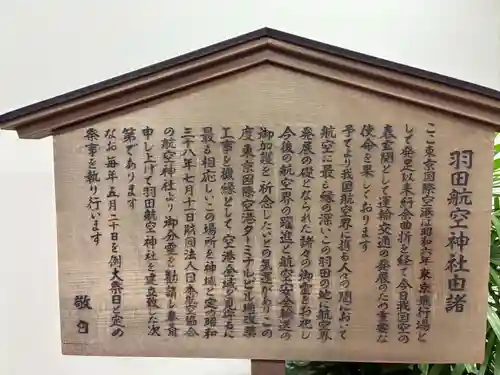 羽田航空神社由諸
ここ東京国際空港は昭和六年東京飛行場と
して発足以来紆余曲折を経て今日我国空の
表玄関として運輸交通の発展のため重要な
使命を果しております
予てより我国航空界に携る人々の間において
航空に最も縁の深いこの羽田の地に航空界
発展の礎となられた諸々の御霊をお祀し
今後の航空界の躍進と航空安全輸送の
御加護を祈念したいとの気運がありこの
度東京国際空港ターミナルビル増改築
工事を機縁として空港全域を見渡るに
最も相応しいこの場所を神域と定め昭和
三十八年七月十二日財団法人日本航空協会
の航空神社より御分霊を勧請し奉斎
申し上げて羽田航空神社を建立致した次
第であります
なお毎年五月二十日を例大祭日と定め
祭事を執り行います
敬白